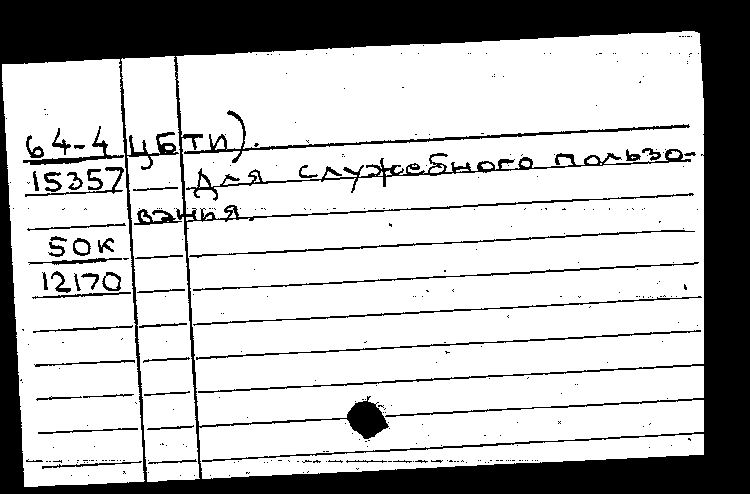 64-4 ЦБТИ).
15357 Для служебного пользо-
вания.
50к
12170